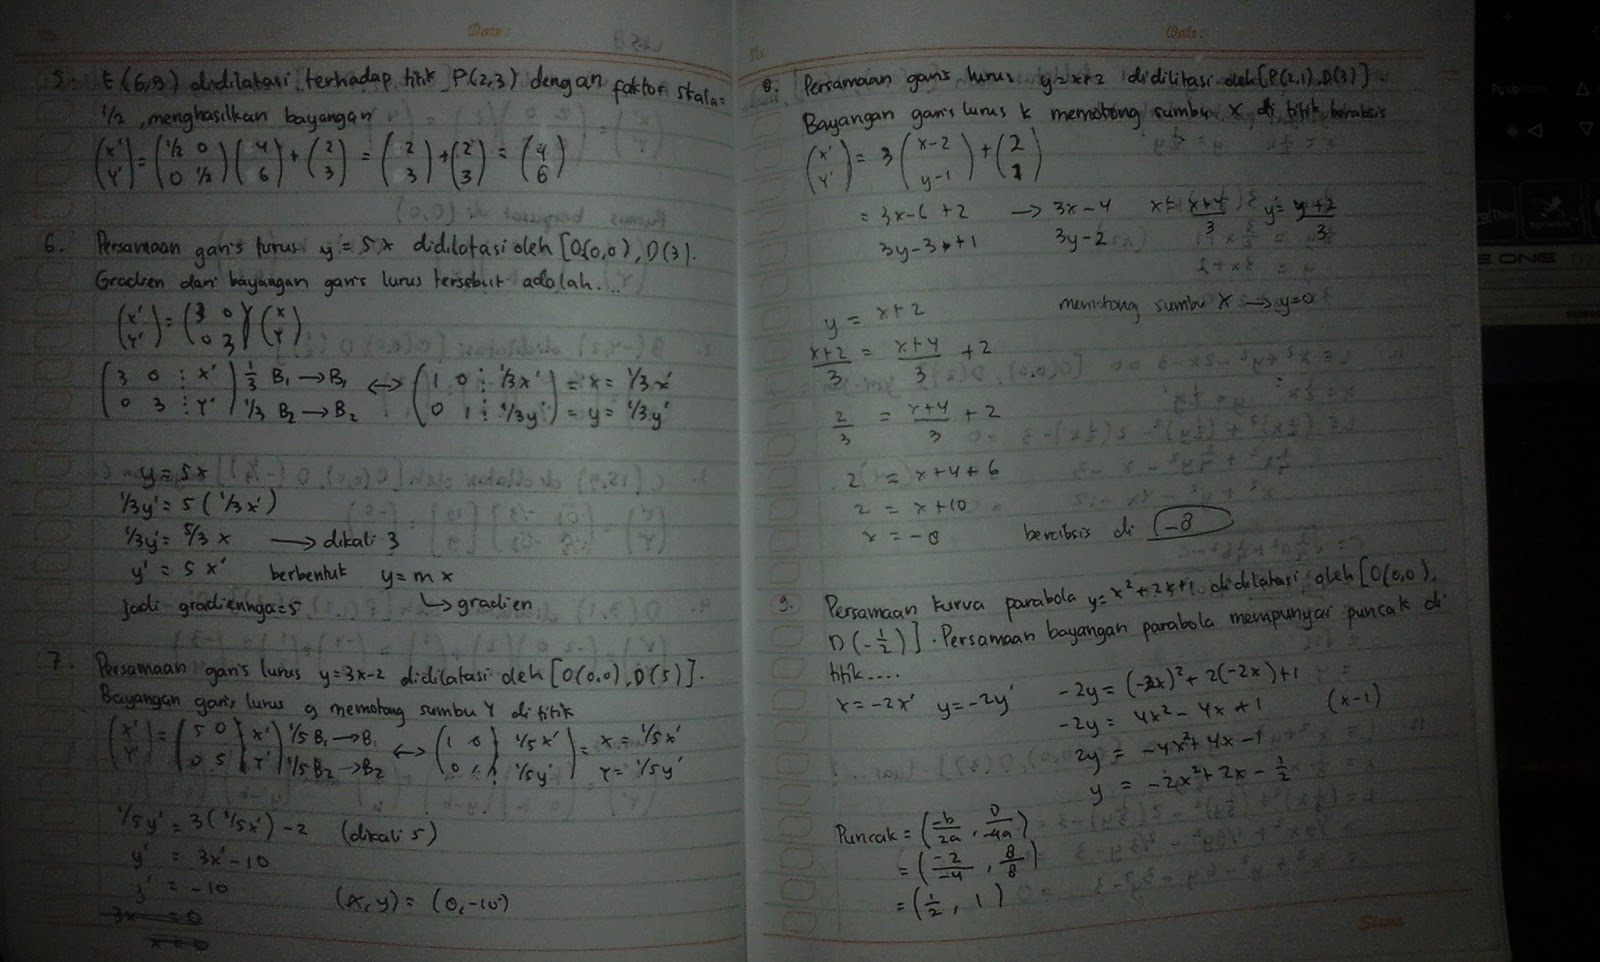 Date:
5. E(6,9) didilatasi terhadap titik P(2,3) dengan faktor skala =
1/2, menghasilkan bayangan
(x' Y') = (1/2 0 0 1/2) (4 6) + (2 3) = (2 3) + (2 3) = (4 6)
6. Persamaan garis lurus y = 5x didilatasi oleh [O(0,0), D(3).
Gradien dari bayangan garis lurus tersebut adalah...
(x' Y') = (3 0 0 3) (x Y)
(3 0 : x' 0 3 : Y') 1/3 B1 → B1 1/3 B2 → B2 ↔ (1 0 : 1/3x' 0 1 : 1/3y') = x = 1/3 x' = y = 1/3 y'
y = 5x
1/3y' = 5 (1/3x')
1/3y' = 5/3 x → dikali 3
y' = 5x' berbentuk y = mx
jadi gradiennya = 5 ↳ gradien
7. Persamaan garis lurus y = 3x-2 didilatasi oleh [O(0,0), D(5)].
Bayangan garis lurus g memotong sumbu Y di titik
(x' Y') = (5 0 0 5 | x' Y') 1/5 B1 → B1 1/5 B2 → B2 ↔ (1 0 0 1 : 1/5x' 1/5y') = x = 1/5x' Y = 1/5y'
1/5y' = 3(1/5x') - 2 (dikali 5)
y' = 3x' - 10
y' = -10 (x,y) = (0,-10)
3x = 0
x = 0
Date:
8. Persamaan garis lurus y = x+2 didilitasi oleh [P(2,1), D(3)].
Bayangan garis lurus k memotong sumbu X di titik berabsis
(x' Y') = 3 (x-2 y-1) + (2 1)
= 3x-6+2 → 3x-4 x = (x+4)/3 y = (y+2)/3
3y-3+1 3y-2
y = x+2 memotong sumbu X → y=0
x+2/3 = x+4/3 + 2
2/3 = x+4/3 + 2
2 = x+4+6
2 = x+10
x = -8 berabsis di (-8)
9. Persamaan kurva parabola y = x²+2x+1 didilatasi oleh [O(0,0),
D(-1/2)]. Persamaan bayangan parabola mempunyai puncak di
titik....
x = -2x' y = -2y' -2y = (-2x)² + 2(-2x) + 1
-2y = 4x² - 4x + 1 (x-1)
2y = -4x² + 4x - 1
y = -2x² + 2x - 1/2
Puncak = (-b/2a, D/-4a)
= (-2/-4, 8/8)
= (1/2, 1)